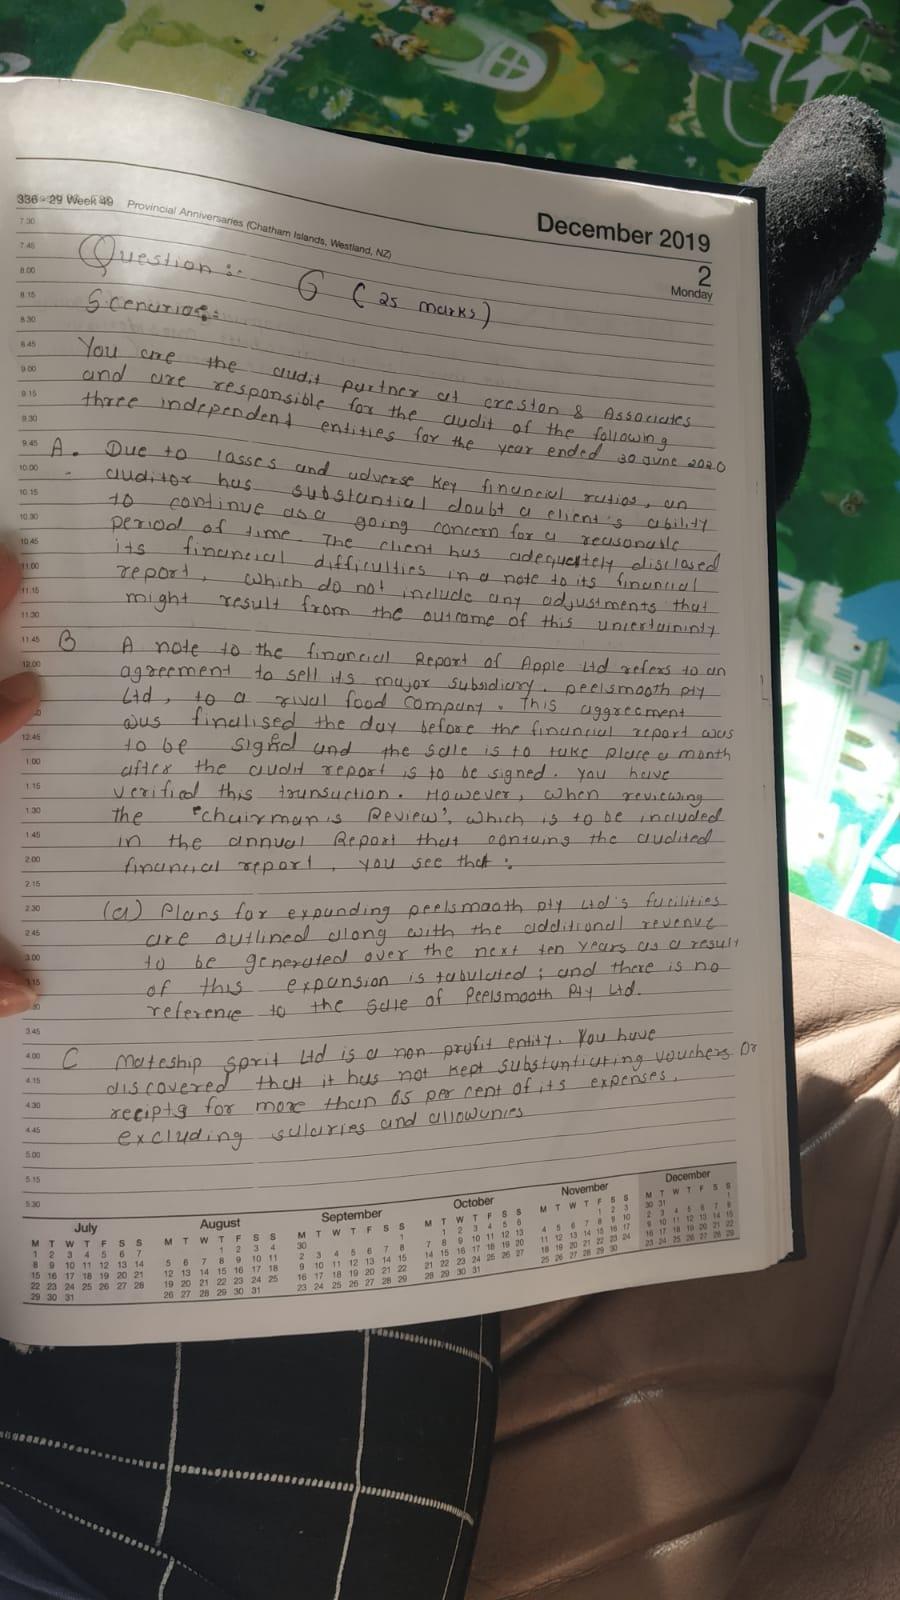 336 - 29 Week 49 Provincial Anniversaries (Chatham Islands, Westland, NZ)
December 2019
2
Monday
Question :-
G (25 marks)
Scenario :-
You are the audit partner at creston & Associates
and are responsible for the audit of the following
three independent entities for the year ended 30 June 2020
A. Due to losses and adverse key financial ratios, an
auditor has substantial doubt a client's ability
to continue as a going concern for a reasonable
period of time. The client has adequately disclosed
its financial difficulties in a note to its financial
report, which do not include any adjustments that
might result from the outcome of this uncertaininty
B A note to the financial Report of Apple Ltd refers to an
agreement to sell its major subsidiary, peelsmooth pty
Ltd, to a rival food company. This aggreement
was finalised the day before the financial report was
to be signed and the sale is to take place a month
after the audit report is to be signed. you have
verified this transaction. However, when reviewing
the "chairman's Review', which is to be included
in the annual Report that contains the audited
financial report, you see that :
(a) Plans for expanding peelsmooth pty Ltd's facilities
are outlined along with the additional revenue
to be generated over the next ten years as a result
of this expansion is tabulated ; and there is no
reference to the sale of Peelsmooth Pty Ltd.
C Mateship Sprit Ltd is a non-profit entity. You have
discovered that it has not kept substantiating vouchers or
recipts for more than 65 per cent of its expenses,
excluding salaries and allowances
7.30
7.45
8.00
8.15
8.30
8.45
9.00
9.15
9.30
9.45
10.00
10.15
10.30
10.45
11.00
11.15
11.30
11.45
12.00
12.45
1.00
1.15
1.30
1.45
2.00
2.15
2.30
2.45
3.00
3.15
3.45
4.00
4.15
4.30
4.45
5.00
5.15
5.30
July
M T W T F S S
1 2 3 4 5 6 7
8 9 10 11 12 13 14
15 16 17 18 19 20 21
22 23 24 25 26 27 28
29 30 31
August
M T W T F S S
1 2 3 4
5 6 7 8 9 10 11
12 13 14 15 16 17 18
19 20 21 22 23 24 25
26 27 28 29 30 31
September
M T W T F S S
30 1
2 3 4 5 6 7 8
9 10 11 12 13 14 15
16 17 18 19 20 21 22
23 24 25 26 27 28 29
October
M T W T F S S
1 2 3 4 5 6
7 8 9 10 11 12 13
14 15 16 17 18 19 20
21 22 23 24 25 26 27
28 29 30 31
November
M T W T F S S
1 2 3
4 5 6 7 8 9 10
11 12 13 14 15 16 17
18 19 20 21 22 23 24
25 26 27 28 29 30
December
M T W T F S S
30 31 1
2 3 4 5 6 7 8
9 10 11 12 13 14 15
16 17 18 19 20 21 22
23 24 25 26 27 28 29